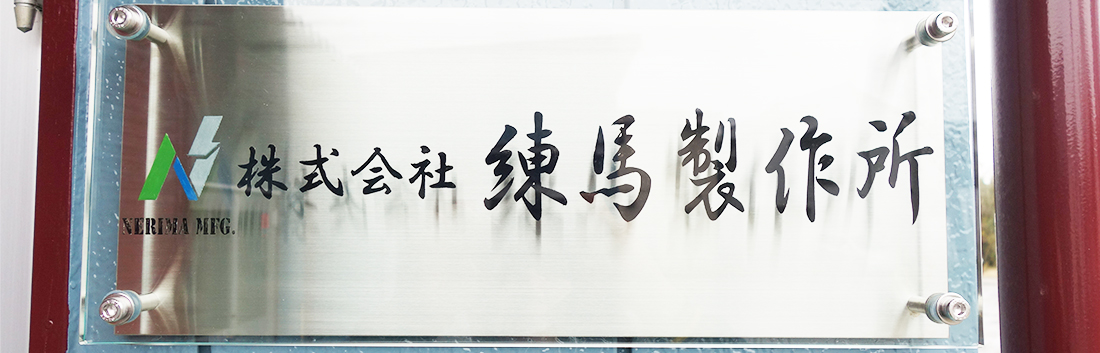 株式会社 練馬製作所
NERIMA MFG.